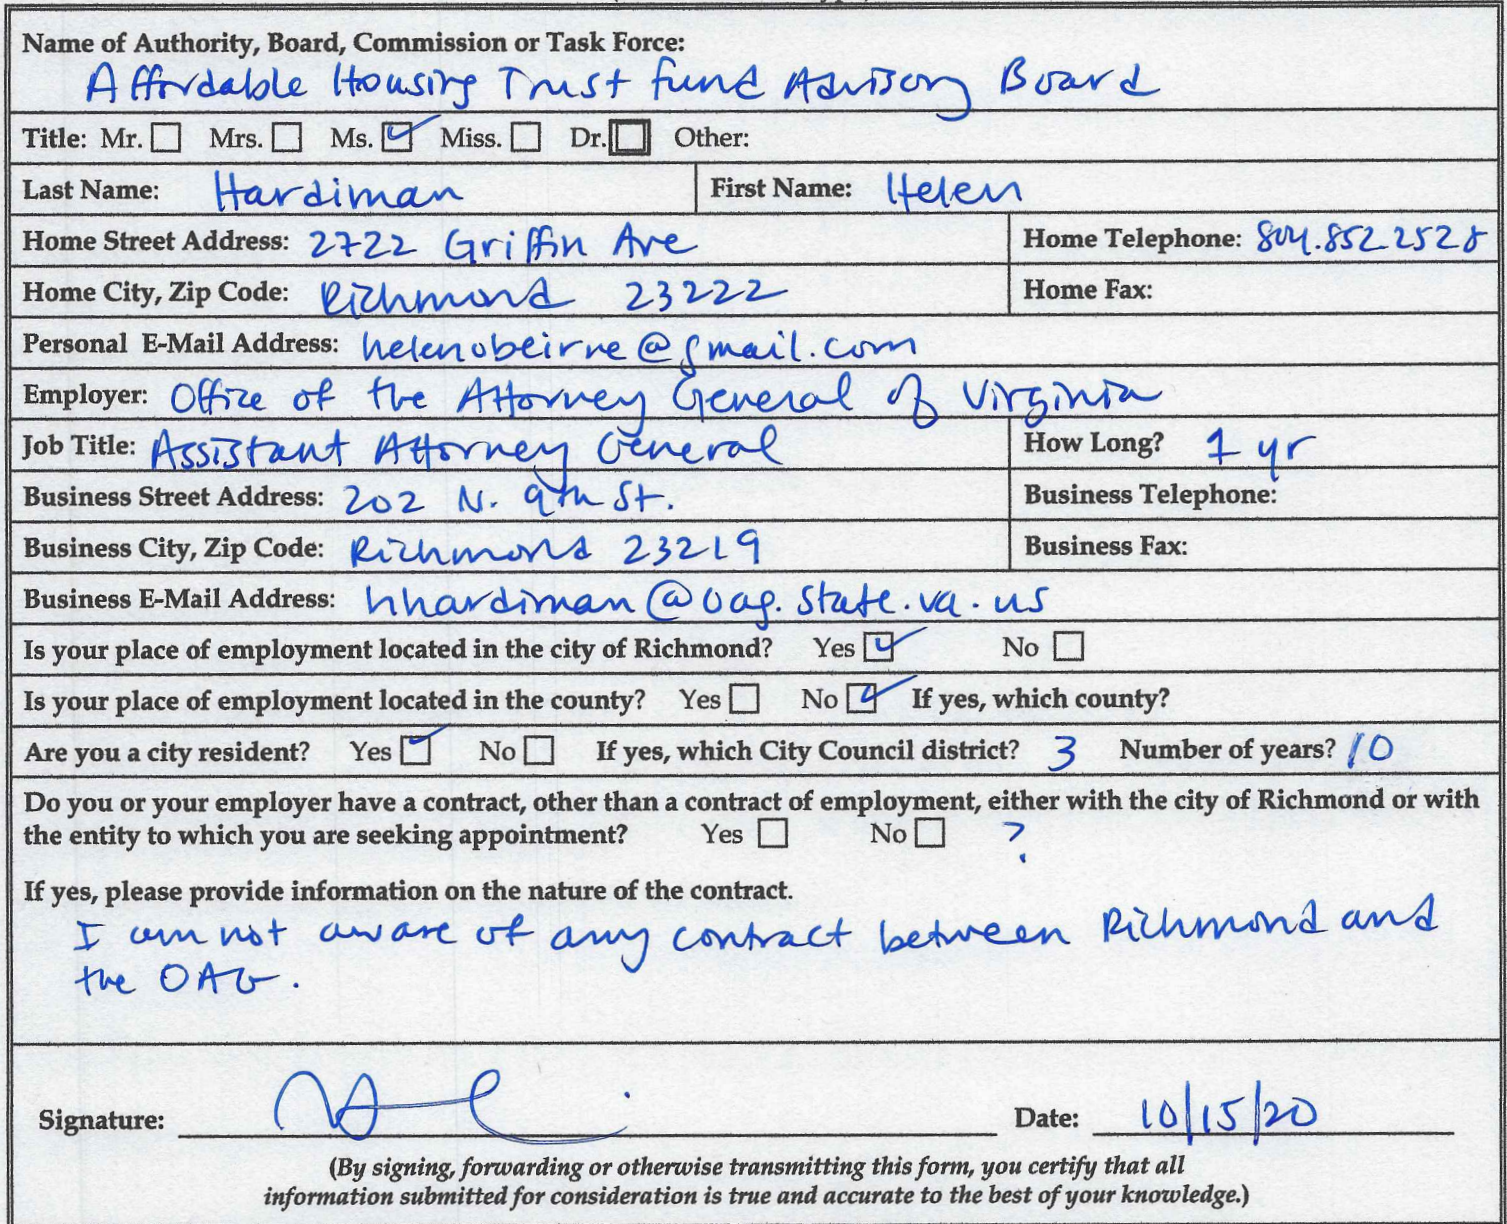 Name of Authority, Board, Commission or Task Force:
Affordable Housing Trust Fund Advisory Board
Title: Mr. Mrs. Ms. Miss. Dr. Other:
Last Name: Hardiman First Name: Helen
Home Street Address: 2722 Griffin Ave Home Telephone: 804.852.2528
Home City, Zip Code: Richmond 23222 Home Fax:
Personal E-Mail Address: helenobeirne@gmail.com
Employer: Office of the Attorney General of Virginia
Job Title: Assistant Attorney General How Long? 1 yr
Business Street Address: 202 N. 9th St. Business Telephone:
Business City, Zip Code: Richmond 23219 Business Fax:
Business E-Mail Address: hhardiman@oag.state.va.us
Is your place of employment located in the city of Richmond? Yes No
Is your place of employment located in the county? Yes No If yes, which county?
Are you a city resident? Yes No If yes, which City Council district? 3 Number of years? 10
Do you or your employer have a contract, other than a contract of employment, either with the city of Richmond or with
the entity to which you are seeking appointment? Yes No ?
If yes, please provide information on the nature of the contract.
I am not aware of any contract between Richmond and
the OAG.
Signature: Date: 10/15/20
(By signing, forwarding or otherwise transmitting this form, you certify that all
information submitted for consideration is true and accurate to the best of your knowledge.)